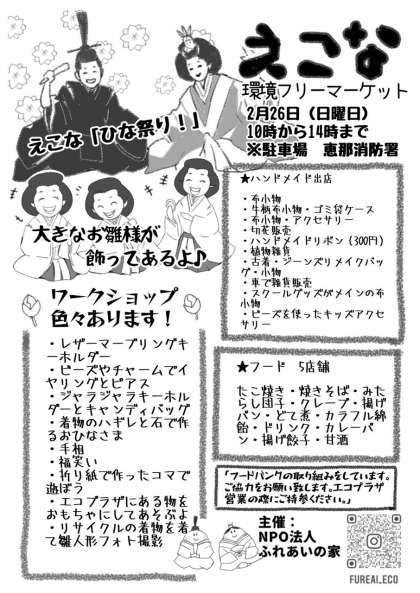 えこな
環境フリーマーケット
2月26日（日曜日）
10時から14時まで
※駐車場　恵那消防署
えこな「ひな祭り！」
大きなお雛様が
飾ってあるよ♪
ワークショップ
色々あります！
・レザーマーブリングキ
ーホルダー
・ビーズやチャームでイ
ヤリングとピアス
・ジャラジャラキーホル
ダーとキャンディバッグ
・着物のハギレと石で作
るおひなさま
・手相
・福笑い
・折り紙で作ったコマで
遊ぼう
・エコプラザにある物を
おもちゃにしてあそぶよ
・リサイクルの着物を着
て雛人形フォト撮影
★ハンドメイド出店
・布小物
・牛柄布小物・ゴミ袋ケース
・布小物・アクセサリー
・切花販売
・ハンドメイドリボン（300円）
・植物雑貨
・古着・ジーンズリメイクバッ
グ・小物
・車で雑貨販売
・スクールグッズがメインの布
小物
・ビーズを使ったキッズアクセ
サリー
★フード　5店舗
たこ焼き・焼きそば・みた
らし団子・クレープ・揚げ
パン・どて煮・カラフル綿
飴・ドリンク・カレーパ
ン・揚げ餃子・甘酒
「フードバンクの取り組みをしています。
ご協力をお願い致します。エコプラザ
営業の際にご持参ください。」
主催：
NPO法人
ふれあいの家
FUREAI.ECO